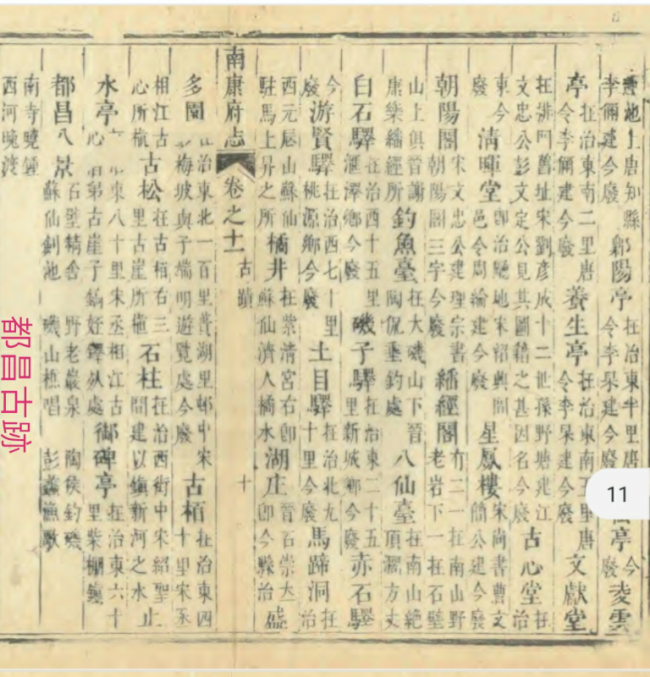 唐知縣
李儞建今廢 鄡陽亭 在治東半里唐
令李杲建今廢 亭 今
廢 凌雲
亭 在治東南二里唐
令李儞建今廢 養生亭 在治東南五里唐
令李杲建今廢 文獻堂
在儒門舊址宋劉彥成十二世孫野塘建江
文忠公彭文定公見其圖籍之甚因名今廢 古心堂 在
治
東今
廢 清暉堂 即治廳地宋紹興間
邑令周綸建今廢 星鳳樓 宋尚書曹文
簡公建今廢
朝陽閣 宋文忠公建理宗書
朝陽閣三字今廢 繙經閣 有二一在南山野
老岩下一在石壁
山上與晉謝
康樂繙經所 釣魚臺 在大磯山下晉
陶侃垂釣處 八仙臺 在南山絕
頂濶方丈
白石驛 在治西十五里
滙澤鄉今廢 磯子驛 在治東二十五
里新城鄉今廢 赤石驛
今
廢 游賢驛 在治西七十里
桃源鄉今廢 土目驛 在治北九
十里今廢 馬蹄洞 在
治
西元辰山蘇仙
駐馬上昇之所 橘井 在紫清宮右即
蘇仙濟人橘水 湖庄 晉石崇大
即今縣治 盛
南康府志 卷之十一 古蹟 十
多閩 在治東北一百里普湖里邨中宋
梅坡與子瑞明遊覽處今廢 古栢 在治東四
十里宋丞
相江古
心所植 古松 在古栢右三
里古崖所植 石柱 在治西街中宋紹聖
間建以鎮新河之水 止
水亭 東八十里宋丞相江古
心 弟古崖子鎬 處 御碑亭 在治東六十
里柴棚鎮
都昌八景 石壁精舍 野老巖泉 陶侯釣磯
蘇仙劍池 磯山樵唱 彭蠡漁歌
南寺曉鐘
西河晚渡
都昌古跡
11